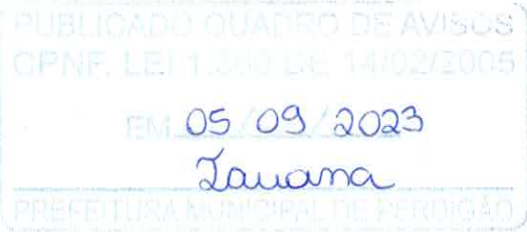 PUBLICADO QUADRO DE AVISOS
CPNF. LEI DE 14/02/2005
EM 05/09/2023
Tauana
PREFEITURA MUNICIPAL DE PERDIGÃO